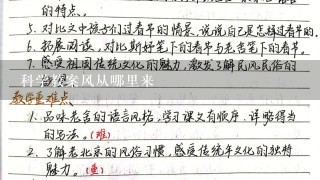 的特点。
5. 对比文中孩子们过春节的情景,说说自己是怎样过春节的。
6. 拓展阅读,对比斯妤笔下的春节与老舍笔下的春节。
7. 感受祖国传统文化的魅力,激发了解民风民俗的
科学教案风从哪里来
教学重难点
1. 品味老舍的语言风格,学习课文有顺序、详略得当
的写法。(难)
2. 了解老北京的风俗习惯,感受传统年文化的独特
魅力。(重)